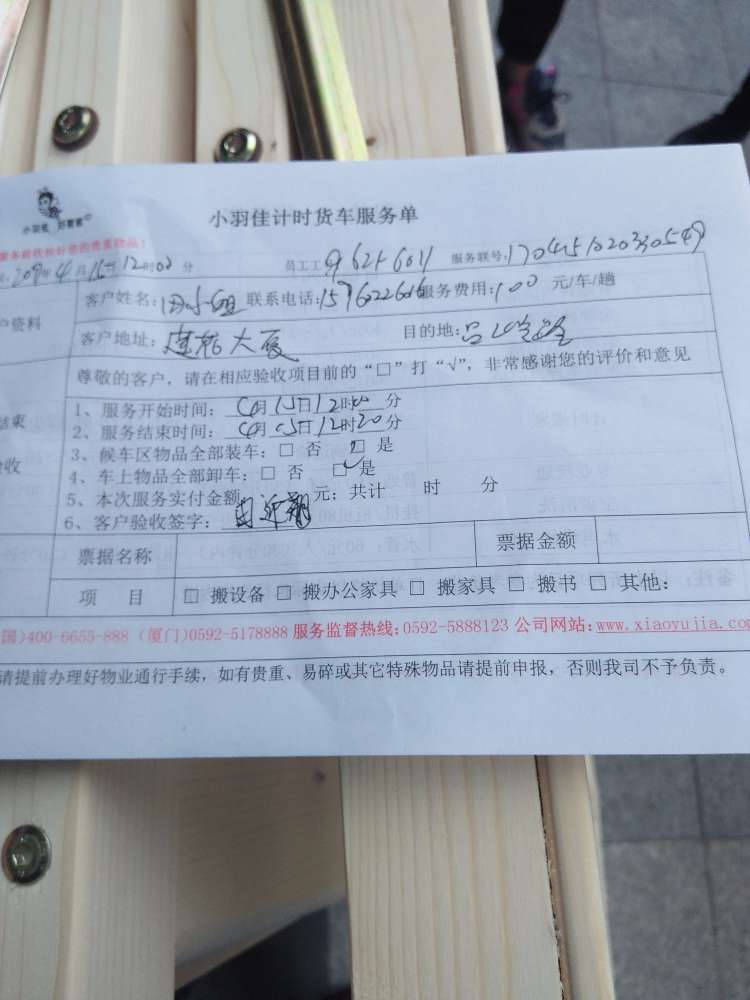 小羽佳 好管家
小羽佳计时货车服务单
服务前收拾好您的贵重物品!
年4月 日12时00分 员工工号6256011 服务联号:170451020330549
客户姓名:田小姐 联系电话: 服务费用:100 元/车/趟
户资料
客户地址: 大厦 目的地:
尊敬的客户,请在相应验收项目前的“□”打“√”,非常感谢您的评价和意见
结束
验收
1、服务开始时间:4月15日12时00分
2、服务结束时间:4月15日12时20分
3、候车区物品全部装车:□ 否 ☑ 是
4、车上物品全部卸车:□ 否 ☑ 是
5、本次服务实付金额 元;共计 时 分
6、客户验收签字:
票据名称 票据金额
项 目 □ 搬设备 □ 搬办公家具 □ 搬家具 □ 搬书 □ 其他:
国)400-6655-888 (厦门)0592-5178888 服务监督热线:0592-5888123 公司网站:www.xiaoyujia.com
请提前办理好物业通行手续,如有贵重、易碎或其它特殊物品请提前申报,否则我司不予负责。